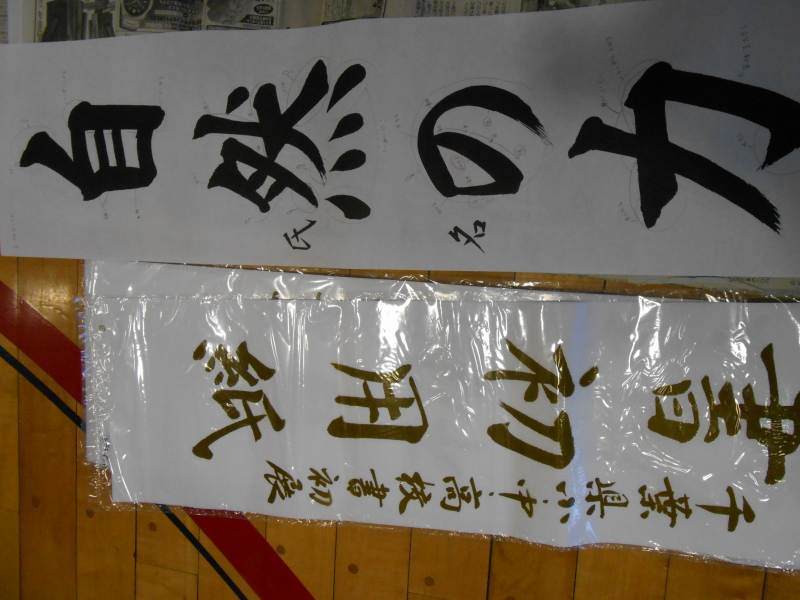 自然の力
氏名
千葉県小・中・高校書初展
書初用紙